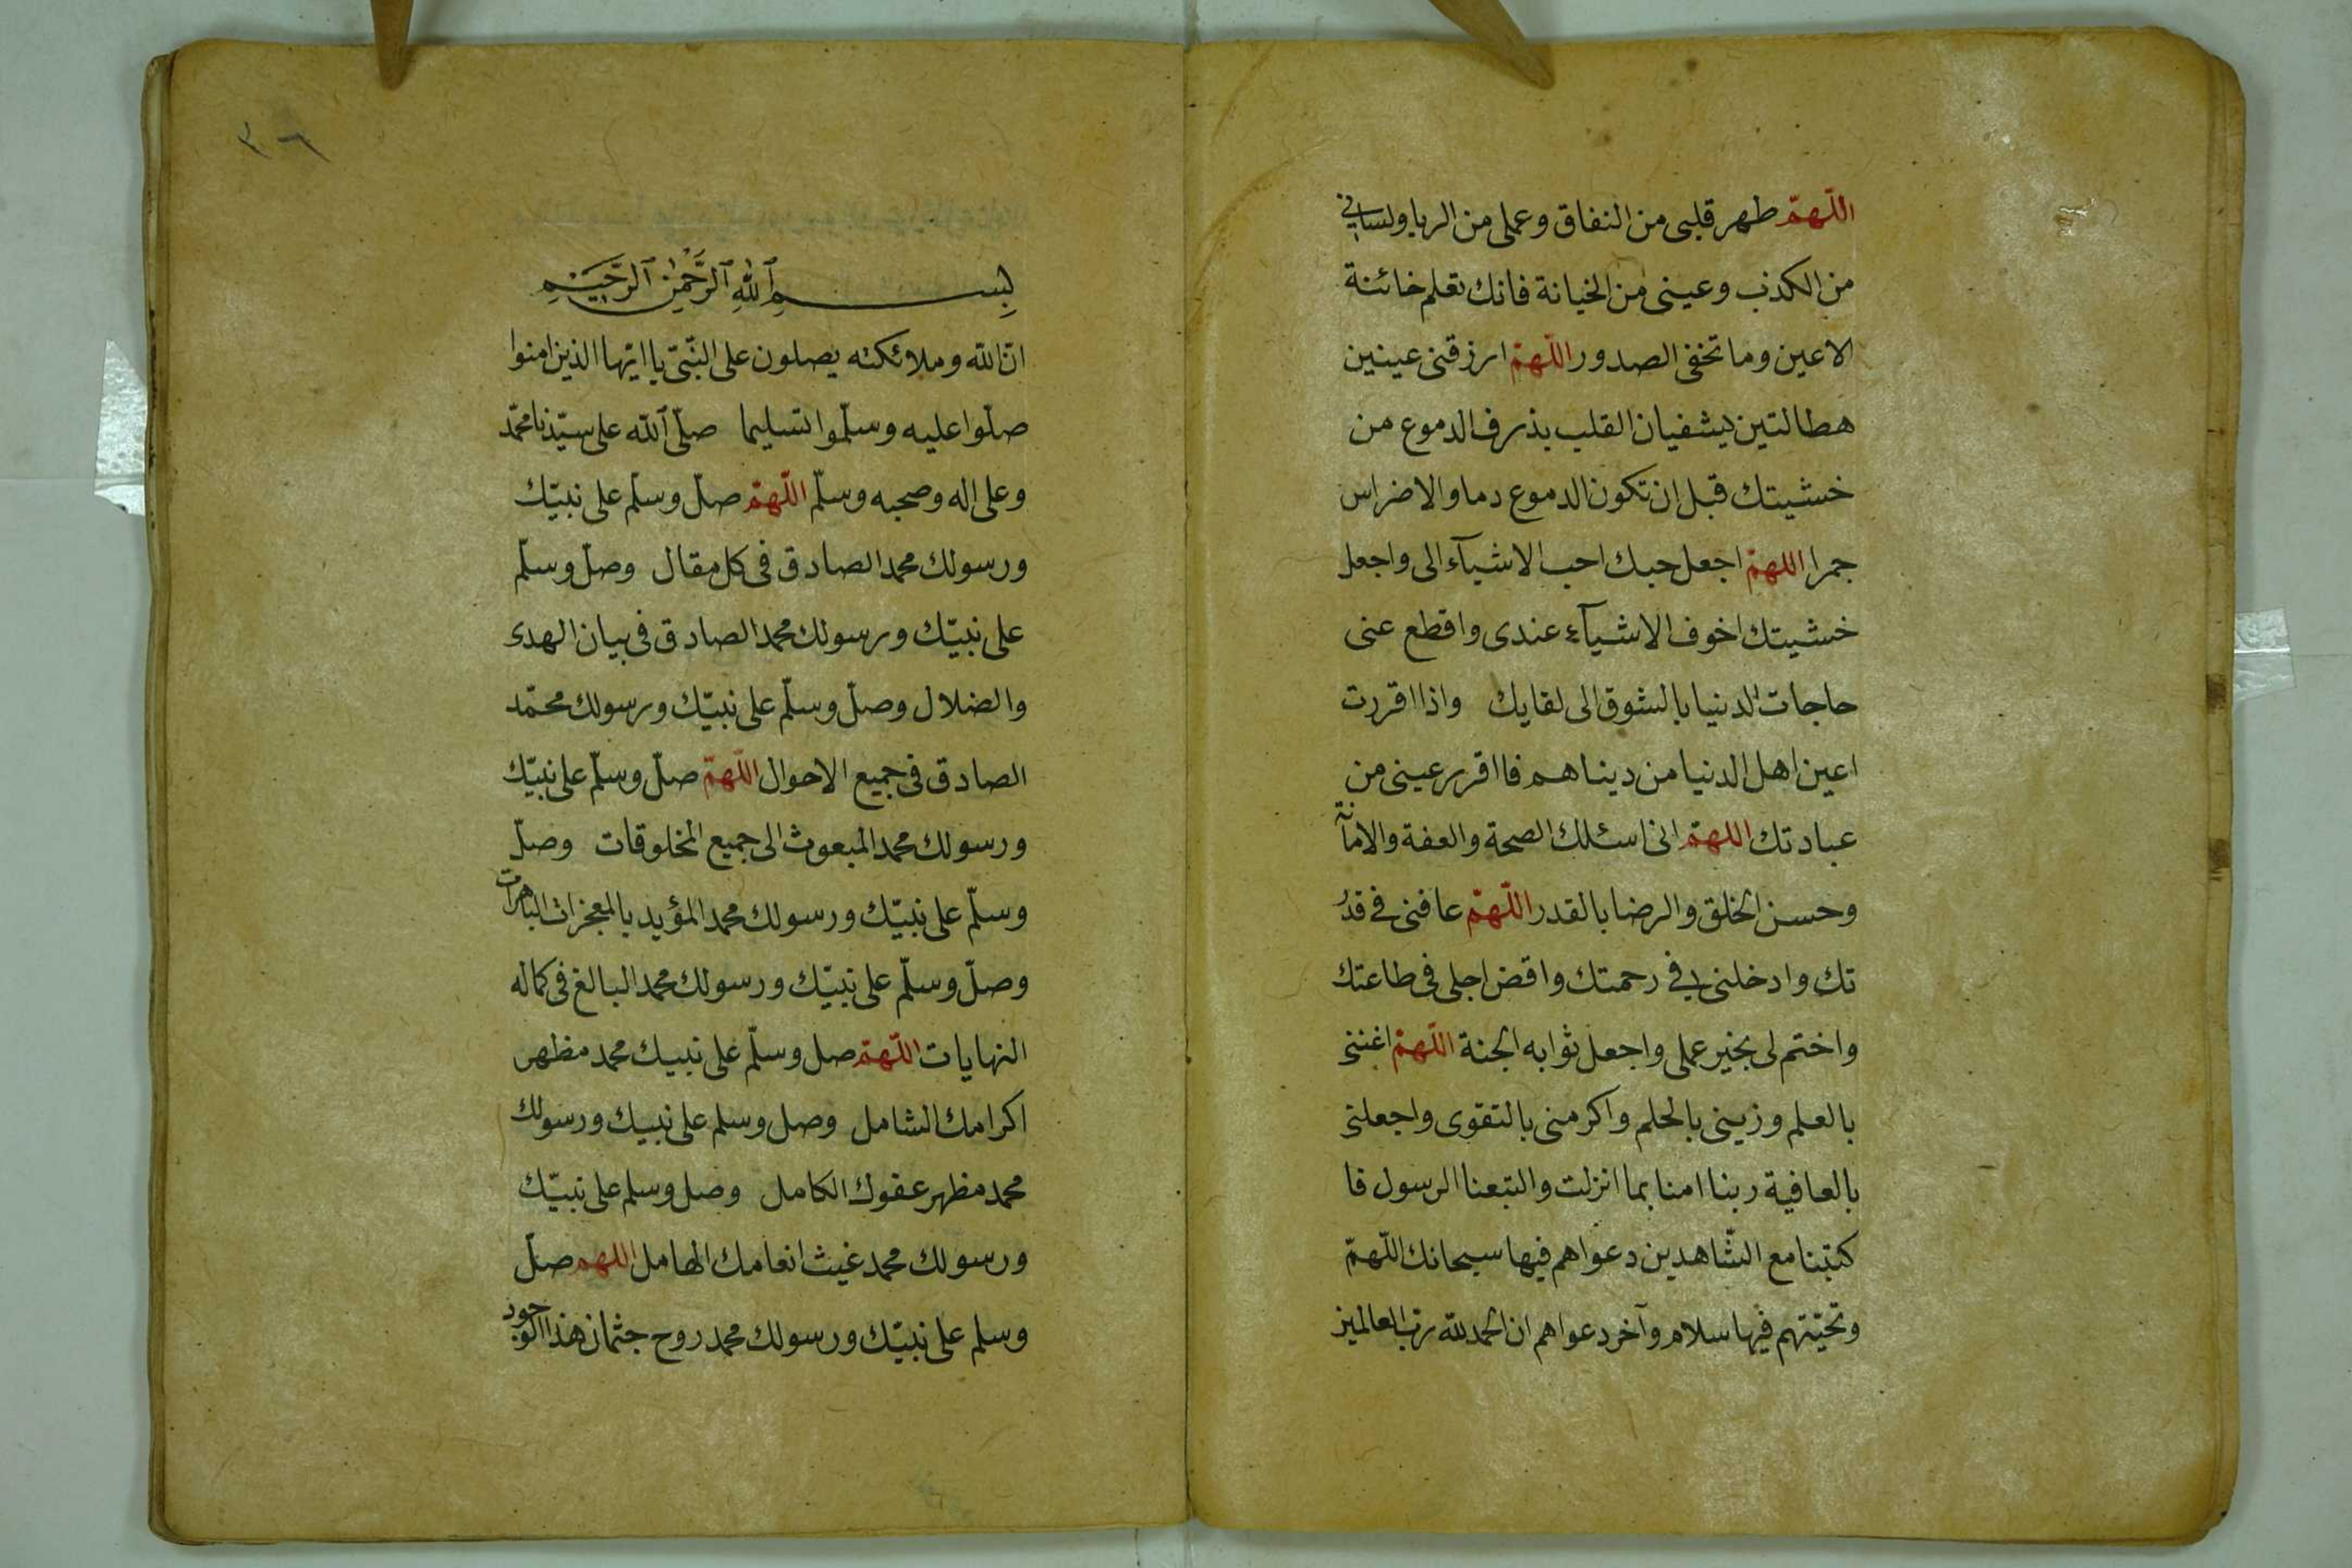 اللّهمّ طهر قلبى من النفاق وعملى من الريا ولسانى
من الكذب وعينى من الخيانة فانك تعلم خائنة
الاعين وما تخفى الصدور اللّهمّ ارزقنى عينين
هطالتين يشفيان القلب بذرف الدموع من
خشيتك قبل ان تكون الدموع دما والاضراس
جمرا اللهمّ اجعل حبك احب الاشيآء الى واجعل
خشيتك اخوف الاشيآء عندى واقطع عنى
حاجات الدنيا بالشوق الى لقايك واذا اقررت
اعين اهل الدنيا من ديناهم فا اقرر عينى من
عبادتك اللهمّ انى اسئلك الصحة والعفة والامانة
وحسن الخلق والرضا بالقدر اللّهمّ عافنى فى قدر
تك وادخلنى فى رحمتك واقض اجلى فى طاعتك
واختم لى بخير عملى واجعل ثوابه الجنة اللّهمّ اغننى
بالعلم وزينى بالحلم واكرمنى بالتقوى واجعلنى
بالعافية ربنا امنا بما انزلت والتبعنا الرسول فا
كتبنا مع الشّاهدين دعواهم فيها سبحانك اللّهمّ
وتحيّتهم فيها سلام وآخر دعواهم ان الحمد لله ربّ العالمين
٣٠٦
بِسْمِ ٱللهِ ٱلرَّحْمٰنِ ٱلرَّحِيْمِ
انّ الله وملائكته يصلون على النّبىّ يا ايّها الذين امنوا
صلّوا عليه وسلّموا تسليما صلّى ٱللّه على سيّدنا محمّد
وعلى اله وصحبه وسلّم اللّهمّ صلّ وسلّم على نبيّك
ورسولك محمد الصادق فى كل مقال وصلّ وسلّم
على نبيّك ورسولك محمد الصادق فى بيان الهدى
والضلال وصلّ وسلّم على نبيّك ورسولك محمّد
الصادق فى جميع الاحوال اللّهمّ صلّ وسلّم على نبيّك
ورسولك محمد المبعوث الى جميع المخلوقات وصلّ
وسلّم على نبيّك ورسولك محمد المؤيد بالمعجزات الباهرات
وصلّ وسلّم على نبيّك ورسولك محمد البالغ فى كماله
النهايات اللّهمّ صل وسلّم على نبيك محمد مظهر
اكرامك الشامل وصل وسلم على نبيك ورسولك
محمد مظهر عفوك الكامل وصل وسلم على نبيّك
ورسولك محمد غيث انعامك الهامل اللهم صلّ
وسلم على نبيّك ورسولك محمد روح جثمان هذا الوجود